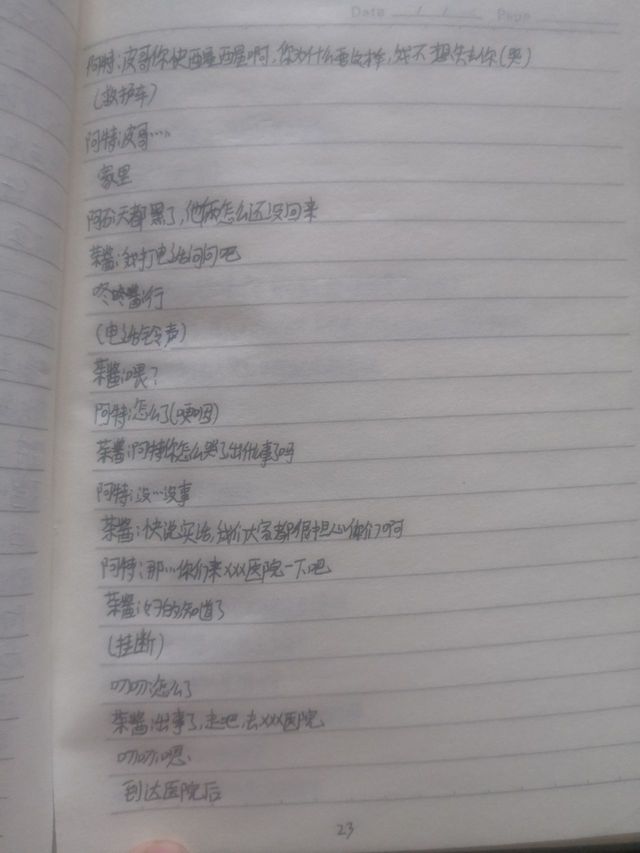 Date / / Page
阿特:皮哥你快醒醒啊,你为什么要这样,我不想失去你(哭)
(救护车)
阿特:皮哥…。
家里
阿天都黑了,他俩怎么还没回来
菜酱:我打电话问问吧
咚咚酱:行
(电话铃声)
菜酱:喂?
阿特:怎么了(哽咽)
菜酱:阿特你怎么哭了出什么事了吗
阿特:没…没事
菜酱:快说实话,我们大家都很担心你们啊
阿特:那…你们来xxx医院一下吧
菜酱:好的知道了
(挂断)
叨叨:怎么了
菜酱:出事了,走吧,去xxx医院
叨叨:嗯.
到达医院后
23